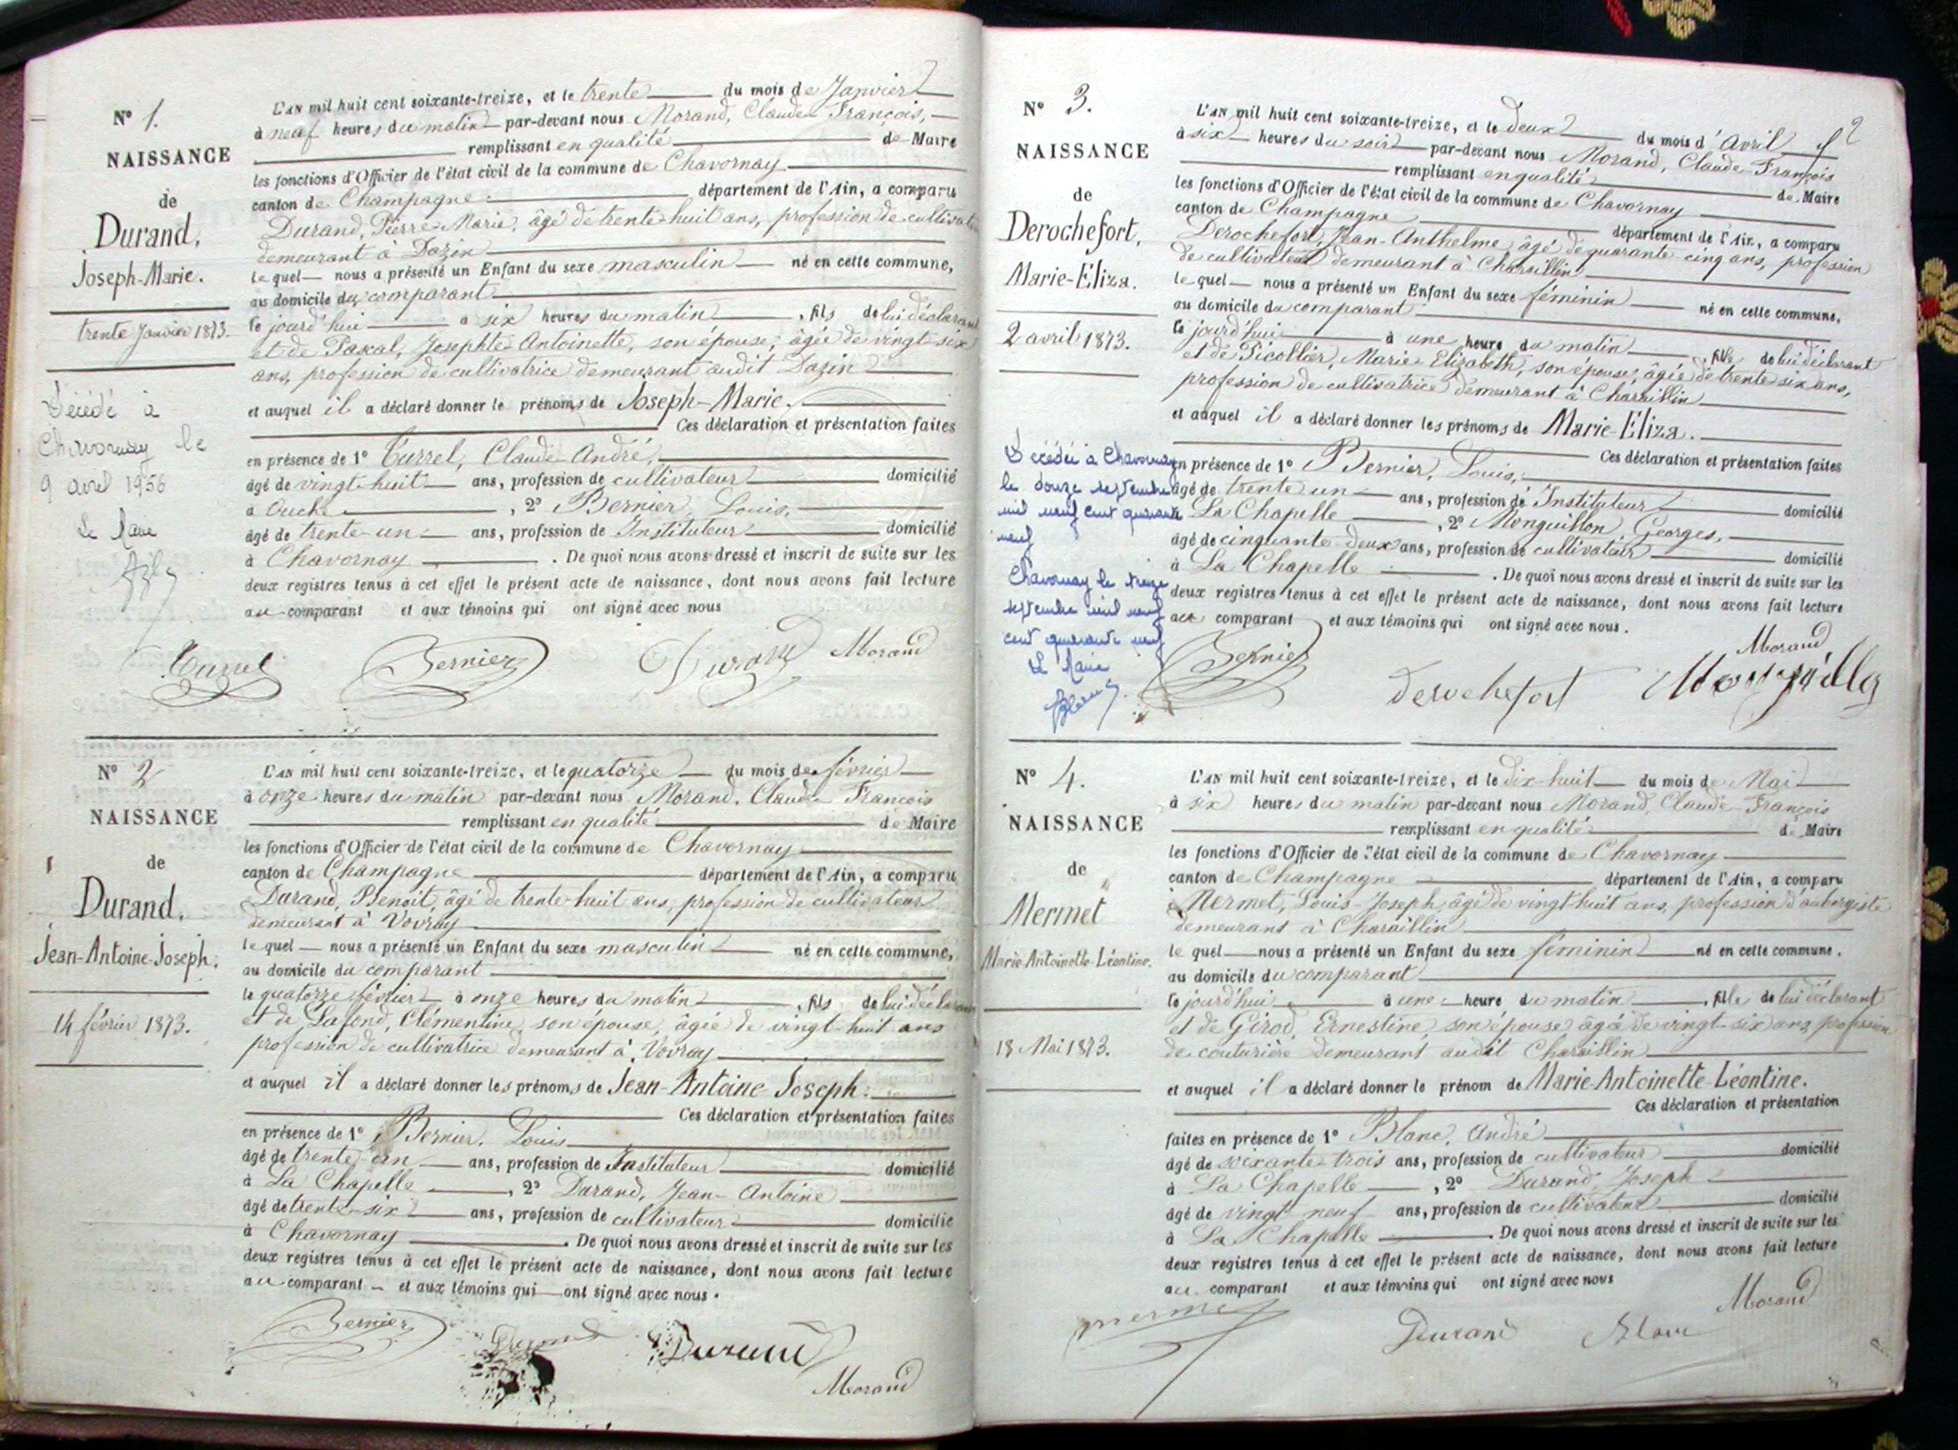 N° 1.
NAISSANCE
de
Durand,
Joseph-Marie.
trente Janvier 1873.
Décédé à
Chavornay le
9 avril 1956
Le Maire
L'AN mil huit cent soixante-treize, et le trente du mois de Janvier
à neuf heures du matin par-devant nous Morand, Claude François,
remplissant en qualité de Maire
les fonctions d'Officier de l'état civil de la commune de Chavornay
canton de Champagne département de l'Ain, a comparu
Durand, Pierre Marie, âgé de trente-huit ans, profession de cultivateur
demeurant à Dazin
lequel nous a présenté un Enfant du sexe masculin né en cette commune,
au domicile du comparant
le jourd'hui à six heures du matin, fils de lui déclarant
et de Pascal, Josephte Antoinette, son épouse, âgée de vingt-six
ans, profession de cultivatrice demeurant audit Dazin
et auquel il a déclaré donner le prénoms de Joseph-Marie.
Ces déclaration et présentation faites
en présence de 1° Turrel, Claude André,
âgé de vingt-huit ans, profession de cultivateur domicilié
à Ouche, 2° Bernier, Louis,
âgé de trente-un ans, profession de Instituteur domicilié
à Chavornay. De quoi nous avons dressé et inscrit de suite sur les
deux registres tenus à cet effet le présent acte de naissance, dont nous avons fait lecture
au comparant et aux témoins qui ont signé avec nous
Turrel Bernier Durand Morand
N° 2
NAISSANCE
de
Durand,
Jean-Antoine-Joseph.
14 février 1873.
L'AN mil huit cent soixante-treize, et le quatorze du mois de février
à onze heures du matin par-devant nous Morand, Claude François
remplissant en qualité de Maire
les fonctions d'Officier de l'état civil de la commune de Chavornay
canton de Champagne département de l'Ain, a comparu
Durand, Benoit, âgé de trente-huit ans, profession de cultivateur
demeurant à Vovray
lequel nous a présenté un Enfant du sexe masculin né en cette commune,
au domicile du comparant
le quatorze février à onze heures du matin, fils de lui déclarant
et de Lafond, Clémentine, son épouse, âgée de vingt-huit ans
profession de cultivatrice demeurant à Vovray
et auquel il a déclaré donner les prénoms de Jean-Antoine Joseph.
Ces déclaration et présentation faites
en présence de 1° Bernier, Louis
âgé de trente-un ans, profession de Instituteur domicilié
à La Chapelle, 2° Durand, Jean-Antoine
âgé de trente-six ans, profession de cultivateur domicilié
à Chavornay. De quoi nous avons dressé et inscrit de suite sur les
deux registres tenus à cet effet le présent acte de naissance, dont nous avons fait lecture
au comparant et aux témoins qui ont signé avec nous.
Bernier Durand Durand
Morand
2
N° 3.
NAISSANCE
de
Derochefort,
Marie-Eliza.
2 avril 1873.
Décédée à Chavornay
le douze septembre
mil neuf cent quarante
neuf
Chavornay le treize
septembre mil neuf
cent quarante neuf
Le Maire
L'AN mil huit cent soixante-treize, et le deux du mois d'avril
à six heures du soir par-devant nous Morand, Claude François
remplissant en qualité de Maire
les fonctions d'Officier de l'état civil de la commune de Chavornay
canton de Champagne département de l'Ain, a comparu
Derochefort, Jean-Anthelme âgé de quarante-cinq ans, profession
de cultivateur demeurant à Charaillin
lequel nous a présenté un Enfant du sexe féminin né en cette commune,
au domicile du comparant
le jourd'hui à une heure du matin, fille de lui déclarant
et de Picollier, Marie Elizabeth, son épouse, âgée de trente six ans,
profession de cultivatrice demeurant à Charaillin
et auquel il a déclaré donner les prénoms de Marie-Eliza.
Ces déclaration et présentation faites
en présence de 1° Bernier, Louis,
âgé de trente un ans, profession de Instituteur domicilié
à La Chapelle, 2° Monguillon Georges,
âgé de cinquante-deux ans, profession de cultivateur domicilié
à La Chapelle. De quoi nous avons dressé et inscrit de suite sur les
deux registres tenus à cet effet le présent acte de naissance, dont nous avons fait lecture
au comparant et aux témoins qui ont signé avec nous.
Morand
Bernier derochefort
N° 4.
NAISSANCE
de
Mermet
Marie Antoinette-Léontine.
18 Mai 1873.
L'AN mil huit cent soixante-treize, et le dix-huit du mois de Mai
à six heures du matin par-devant nous Morand, Claude François
remplissant en qualité de Maire
les fonctions d'Officier de l'état civil de la commune de Chavornay
canton de Champagne département de l'Ain, a comparu
Mermet, Louis-Joseph, âgé de vingt-huit ans, profession d'aubergiste
demeurant à Charaillin
lequel nous a présenté un Enfant du sexe féminin né en cette commune.
au domicile du comparant
le jourd'hui à une heure du matin, fille de lui déclarant
et de Girod, Ernestine, son épouse âgée de vingt-six ans profession
de couturière demeurant audit Charaillin
et auquel il a déclaré donner le prénom de Marie-Antoinette-Léontine.
Ces déclaration et présentation
faites en présence de 1° Blanc, André
âgé de soixante-trois ans, profession de cultivateur domicilié
à La Chapelle, 2° Durand, Joseph
âgé de vingt-neuf ans, profession de cultivateur domicilié
à La Chapelle. De quoi nous avons dressé et inscrit de suite sur les
deux registres tenus à cet effet le présent acte de naissance, dont nous avons fait lecture
au comparant et aux témoins qui ont signé avec nous
Morand
mermet Durand Blanc